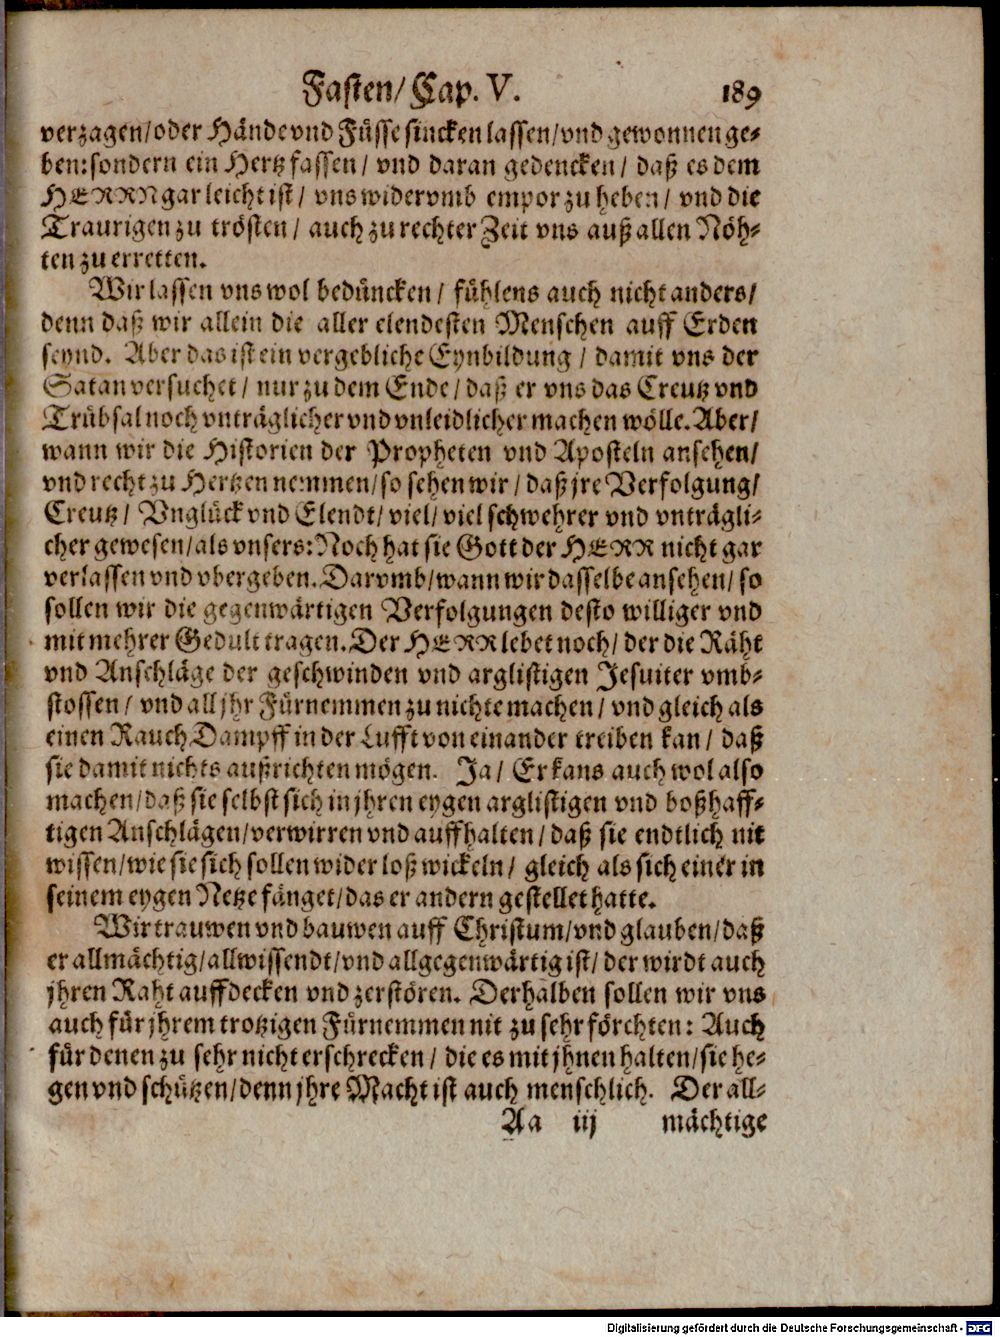 Fasten/ Cap. V. 189
verzagen/oder Hände vnd Füsse sincken lassen/vnd gewonnen ge-
ben: sondern ein Hertz fassen/ vnd daran gedencken/ daß es dem
HERRN gar leicht ist/ vns widervmb empor zu heben/ vnd die
Traurigen zu trösten/ auch zu rechter Zeit vns auß allen Nöh-
ten zu erretten.
Wir lassen vns wol bedüncken/ fühlens auch nicht anders/
denn daß wir allein die aller elendesten Menschen auff Erden
seynd. Aber das ist ein vergebliche Eynbildung/ damit vns der
Satan versuchet/ nur zu dem Ende/ daß er vns das Creutz vnd
Trübsal noch vnträglicher vnd vnleidlicher machen wölle. Aber/
wann wir die Historien der Propheten vnd Aposteln ansehen/
vnd recht zu Hertzen nemmen/ so sehen wir/ daß jre Verfolgung/
Creutz/ Vnglück vnd Elendt/ viel/ viel schwehrer vnd vnträgli-
cher gewesen/ als vnsers: Noch hat sie Gott der HERR nicht gar
verlassen vnd vbergeben. Darvmb/ wann wir dasselbe ansehen/ so
sollen wir die gegenwärtigen Verfolgungen desto williger vnd
mit mehrer Gedult tragen. Der HERR lebet noch/ der die Räht
vnd Anschläge der geschwinden vnd arglistigen Jesuiter vmb-
stossen/ vnd all jhr Fürnemmen zu nichte machen/ vnd gleich als
einen Rauch Dampff in der Lufft von einander treiben kan/ daß
sie damit nichts außrichten mögen. Ja/ Er kans auch wol also
machen/ daß sie selbst sich in jhren eygen arglistigen vnd boßhaff-
tigen Anschlägen/ verwirren vnd auffhalten/ daß sie endtlich nit
wissen/ wie sie sich sollen wider loß wickeln/ gleich als sich einer in
seinem eygen Netze fänget/ das er andern gestellet hatte.
Wir trauwen vnd bauwen auff Christum/ vnd glauben/ daß
er allmächtig/ allwissendt/ vnd allgegenwärtig ist/ der wirdt auch
jhren Raht auffdecken vnd zerstören. Derhalben sollen wir vns
auch für jhrem trotzigen Fürnemmen nit zu sehr förchten: Auch
für denen zu sehr nicht erschrecken/ die es mit jhnen halten/ sie he-
gen vnd schützen/ denn jhre Macht ist auch menschlich. Der all-
Aa iij mächtige
Digitalisierung gefördert durch die Deutsche Forschungsgemeinschaft - DFG